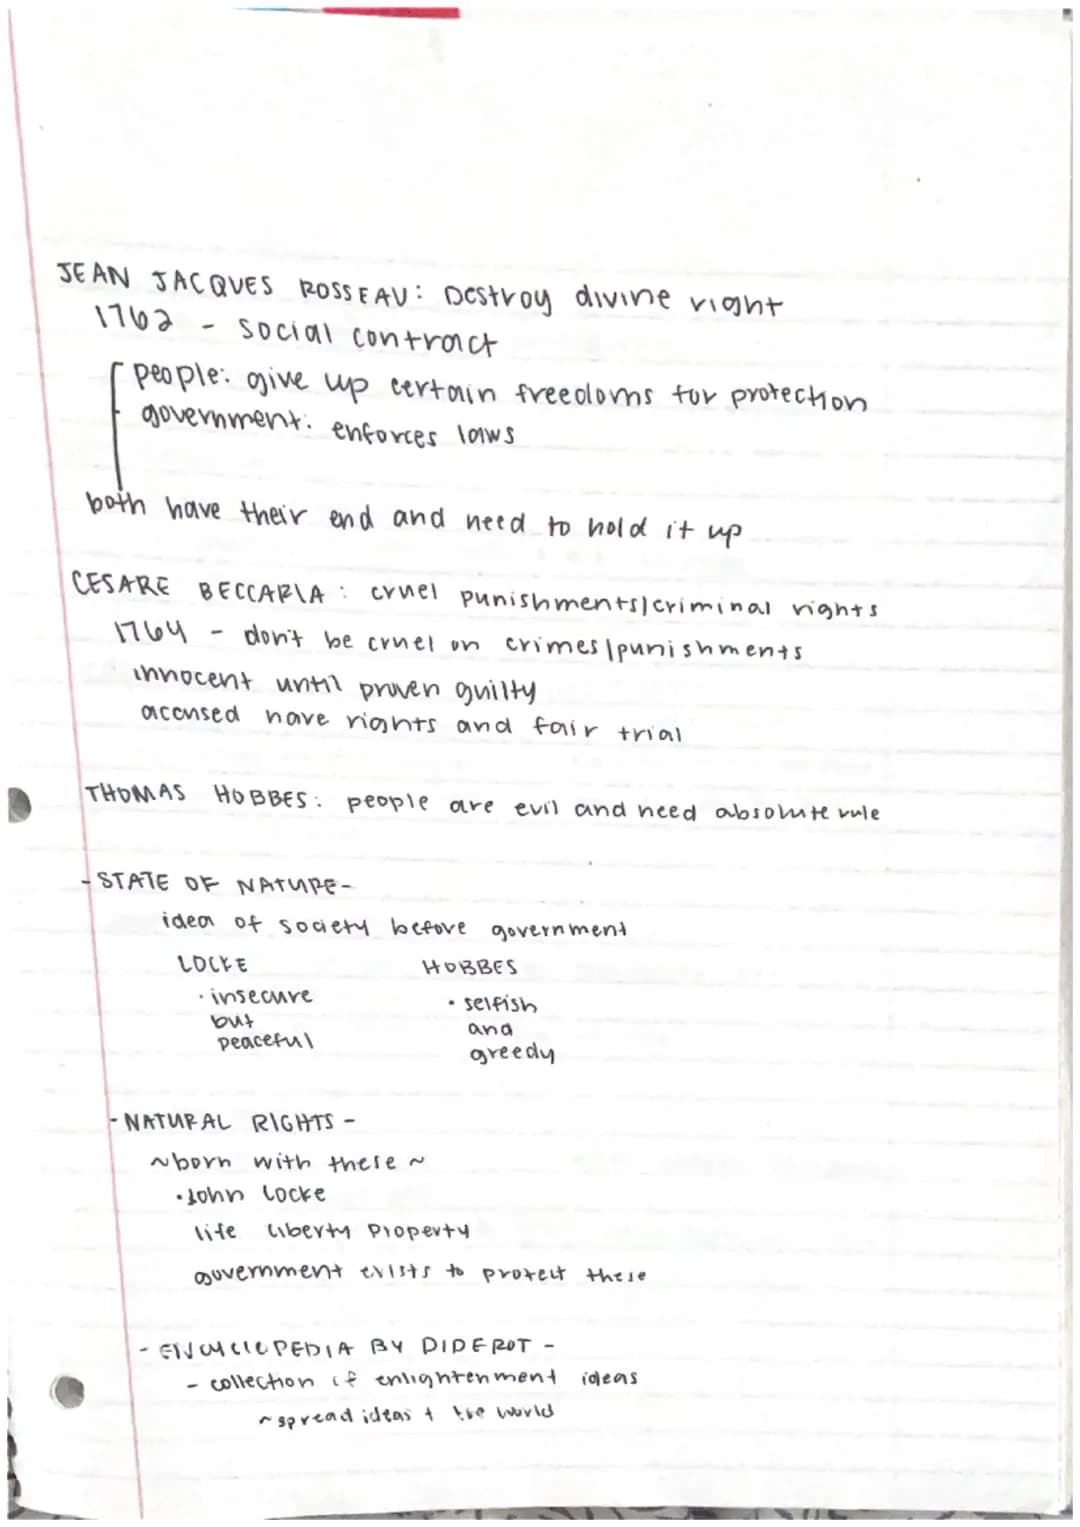 JEAN JACQUES ROSSEAU: Destroy divine right
1762 - social contract
people: give up certain freedoms for protection
government: enforces laws
both have their end and need to hold it up
CESARE BECCARIA: cruel punishments/criminal rights
1764 - don't be cruel on crimes/punishments
innocent until proven guilty
accused have rights and fair trial
THOMAS HOBBES: people are evil and need absolute rule
- STATE OF NATURE-
idea of society before government
LOCKE HOBBES
· insecure · selfish
but and
peaceful greedy
- NATURAL RIGHTS -
~born with these ~
· John Locke
life liberty Property
government exists to protect these
- ENCYCLOPEDIA BY DIDEROT -
- collection of enlightenment ideas
~ spread ideas + the world